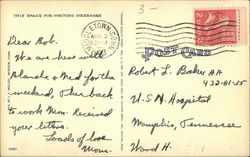 THIS SPACE FOR WRITING MESSAGES
MIDDLETOWN, CONN.
3-
POST CARD
Dear Bob.
We are here with
Blanche & Ned for the
weekend, Then back
to work Mon. Received
your letters.
Loads of love
Mom.
Robert L. Baker AA
432-81-55
U.S.N. Hospital
Memphis, Tennessee
Ward H.